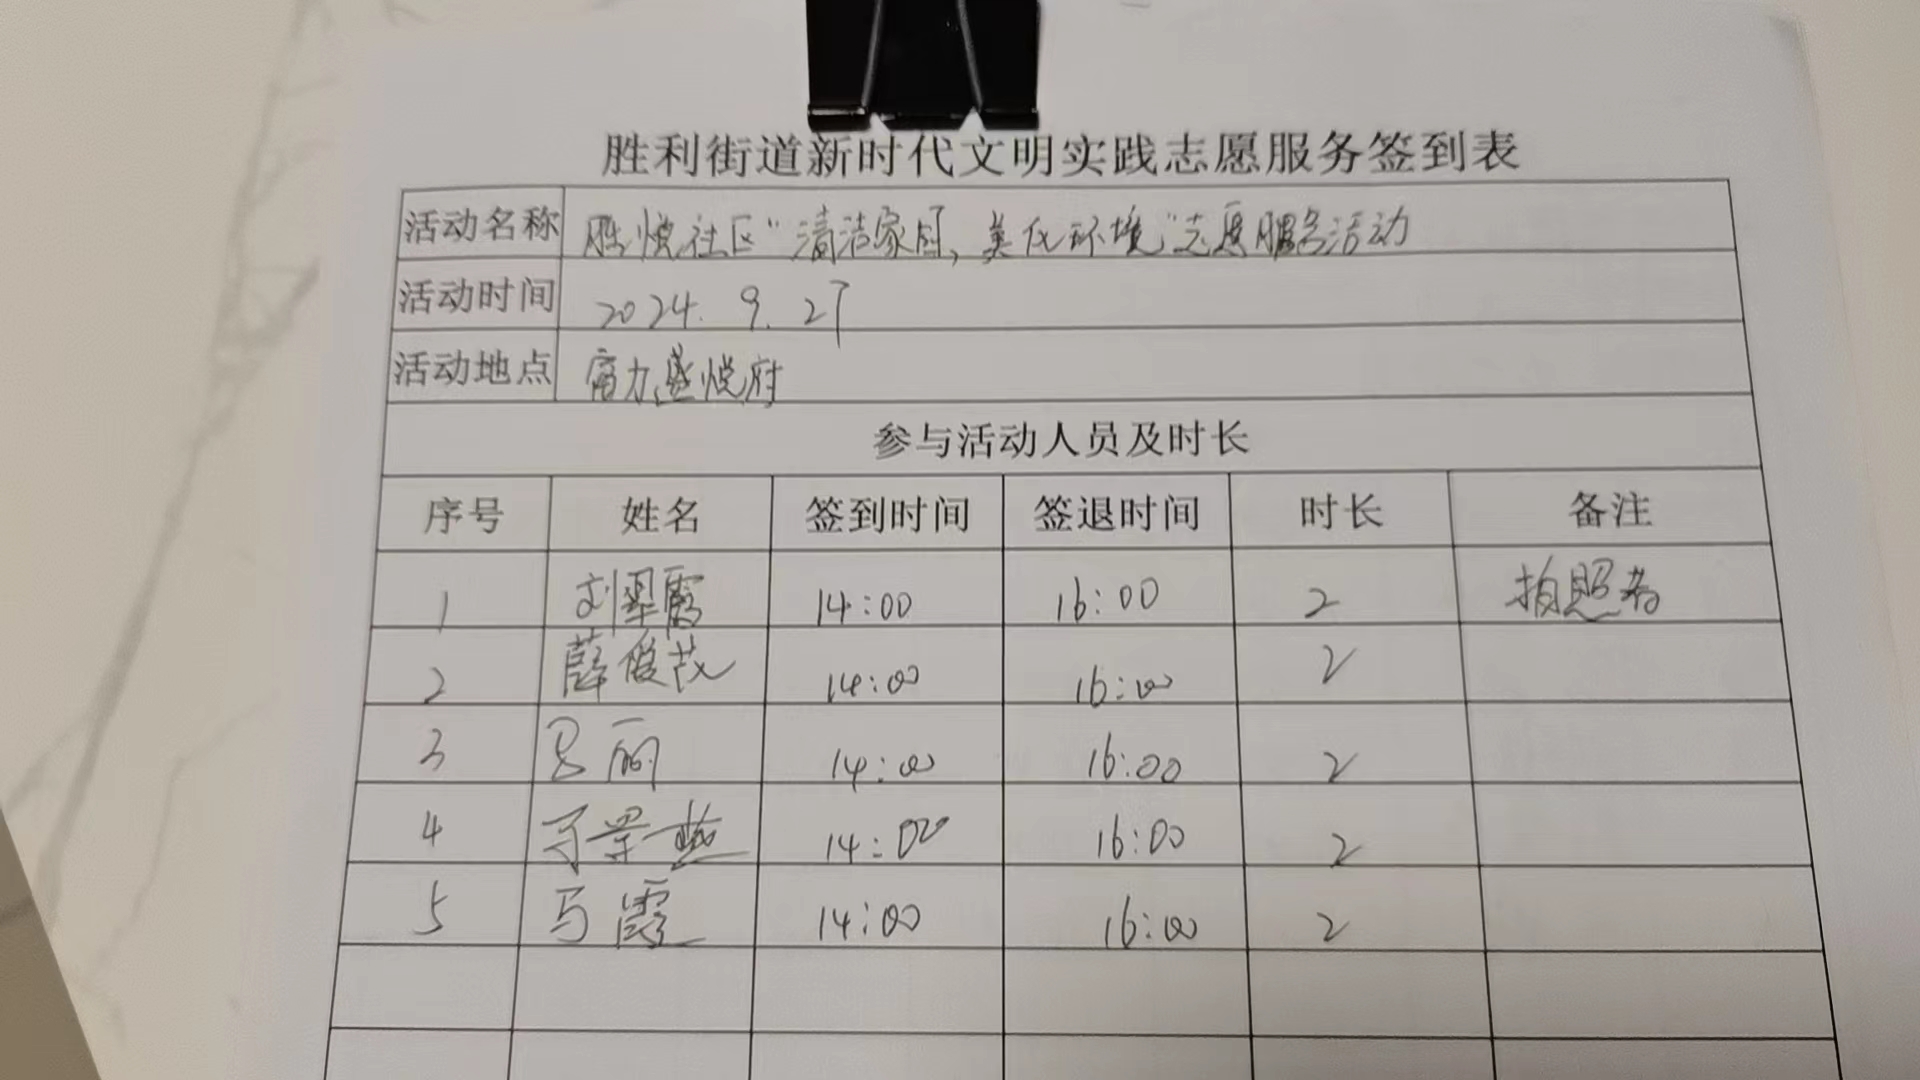 胜利街道新时代文明实践志愿服务签到表
活动名称 胜悦社区“清洁家园，美化环境”志愿服务活动
活动时间 2024. 9. 27
活动地点 富力盛悦府
参与活动人员及时长
序号 姓名 签到时间 签退时间 时长 备注
1 刘翠霞 14:00 16:00 2 拍照者
2 薛俊茂 14:00 16:00 2
3 丽 14:00 16:00 2
4 14:00 16:00 2
5 马霞 14:00 16:00 2